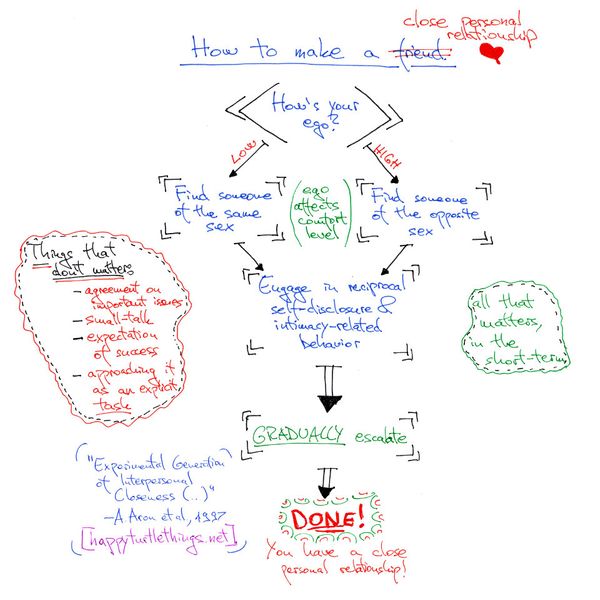 close personal
relationship
How to make a friend
How's your
ego?
LOW
HIGH
Find someone
of the same
sex
(ego
affects
comfort
level)
Find someone
of the opposite
sex
Things that
don't matter:
- agreement on
important issues
- small-talk
- expectation
of success
- approaching it
as an explicit
task
Engage in reciprocal
self-disclosure &
intimacy-related
behavior
all that
matters,
in the
short-term
GRADUALLY escalate
("Experimental Generation
of Interpersonal
Closeness (..)"
- A Aron et al, 1997)
[happyturtlethings.net]
DONE!
You have a close
personal relationship!